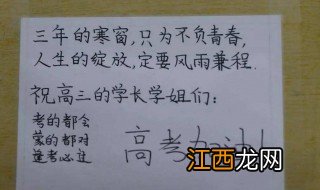 三年的寒窗,只为不负青春,
人生的绽放,定要风雨兼程.
祝高三的学长学姐们:
考的都会
蒙的都对
逢考必过
高考加油
江西龙网